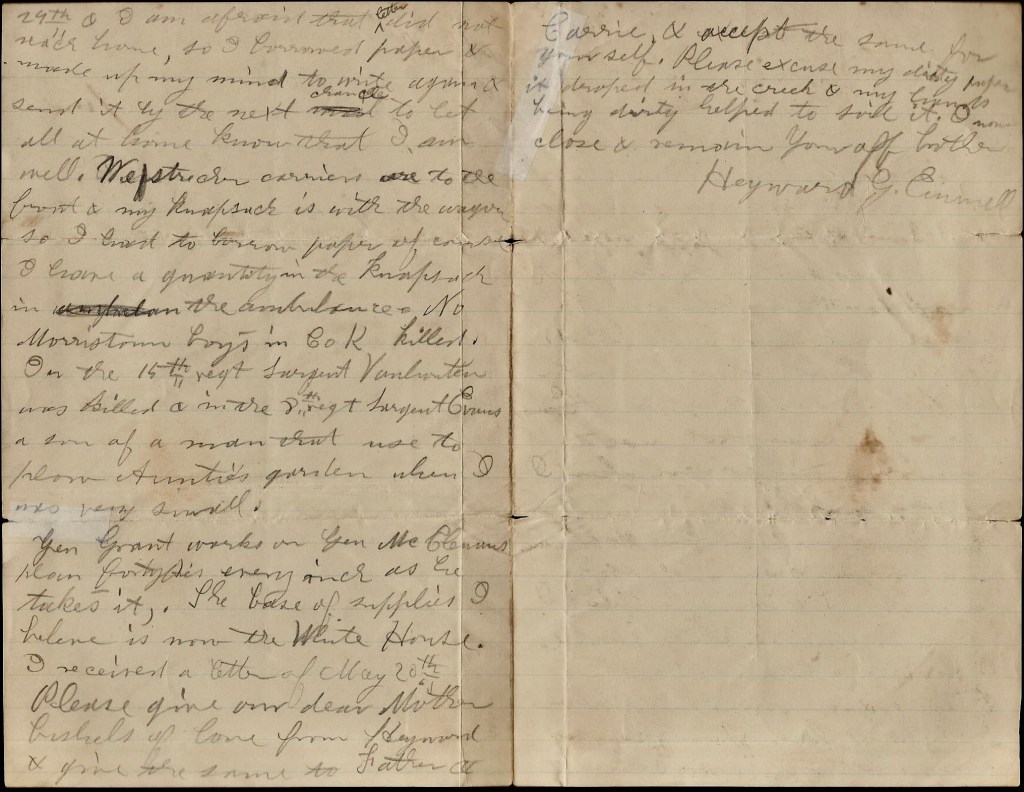 29th & I am afraid that letter did not
reach home, so I borrowed paper &
made up my mind to write again &
send it by the next chance to let
all at home know that I am
well. We stretcher carriers are to the
front & my Knapsack is with the wagon
so I had to borrow paper of course
I have a quantity in the Knapsack
in the ambulance. No
Morristown boys in Co K killed.
In the 15th regt Sargent Vanhouten
was killed & in the 8th regt Sargent Evans
a son of a man that use to
plow Aunties garden when I
was very small.
Gen Grant works on Gen McClenans
plan fortyfies every inch as he
takes it,. The base of supplies I
beleve is now the White House.
I received a letter of May 20th
Please give our dear Mother
bushels of love from Heyward
& give the same to Father &
Carrie, & accept the same for
yourself. Please excuse my dirty paper
it droped in the creek & my hands
being dirty helped to soil it. I now
close & remain Your aff brother
Heyward G. Emmell